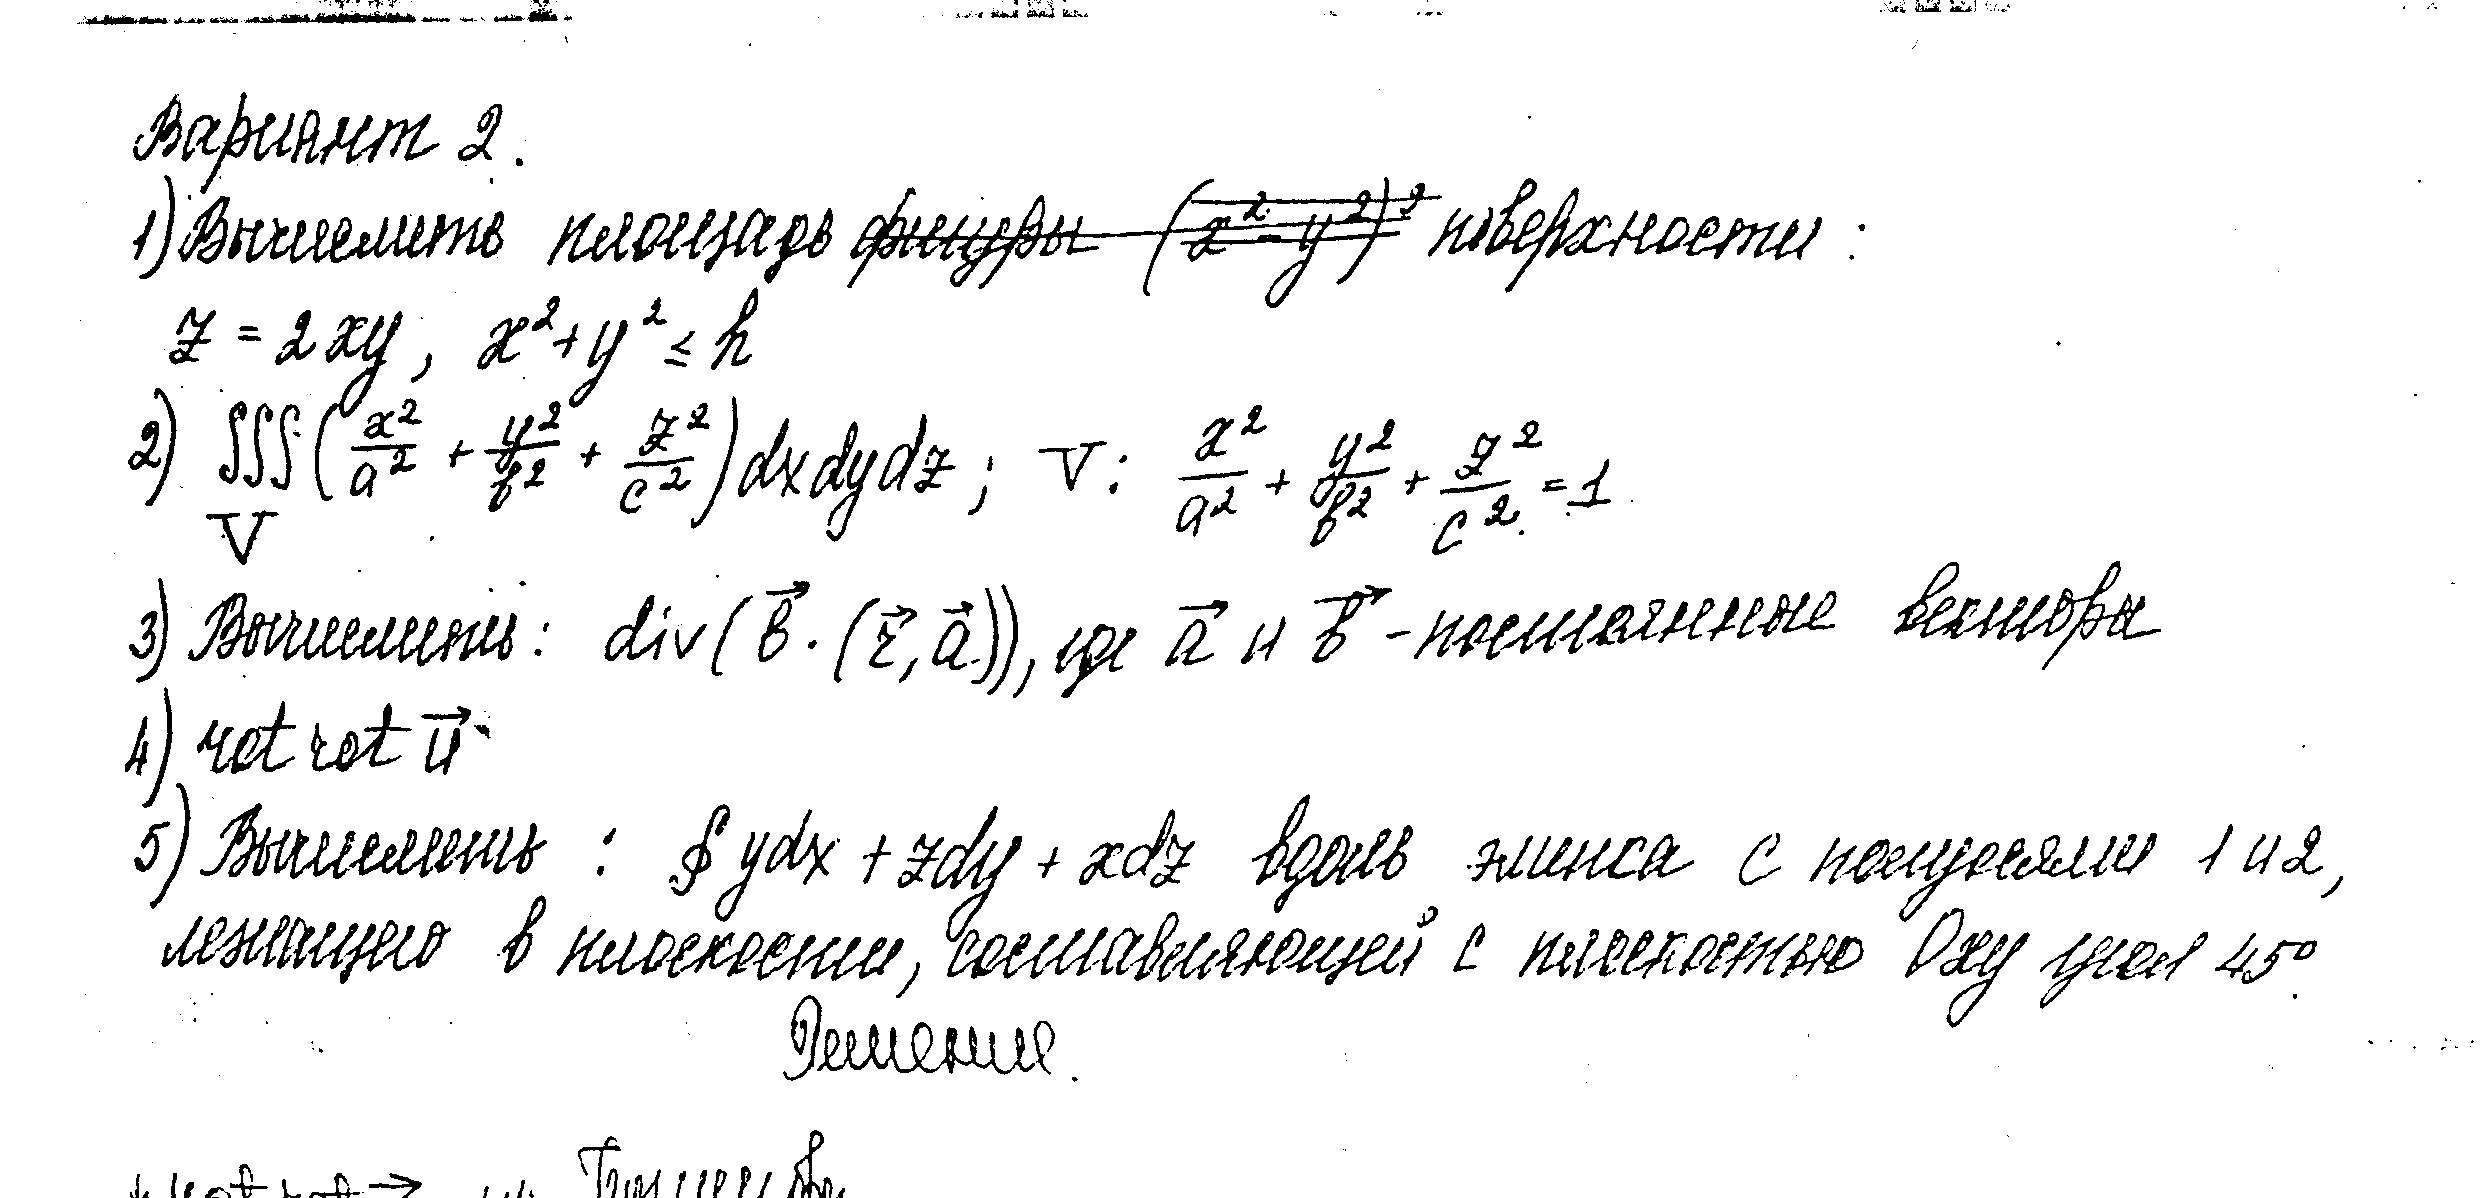 Вариант 2.
1) Вычислить площадь фигуры (x² - y²)² поверхности:
z = 2xy, x² + y² ≤ h
2) ∭_V (x²/a² + y²/b² + z²/c²) dxdydz; V: x²/a² + y²/b² + z²/c² = 1
3) Вычислить: div(b⃗·(r⃗, a⃗)), где a⃗ и b⃗ - постоянные векторы
4) rot rot u⃗
5) Вычислить: ∮ ydx + zdy + xdz вдоль элипса с полуосями 1 и 2,
лежащего в плоскости, составляющей с плоскостью Oxy угол 45°.
Решение.